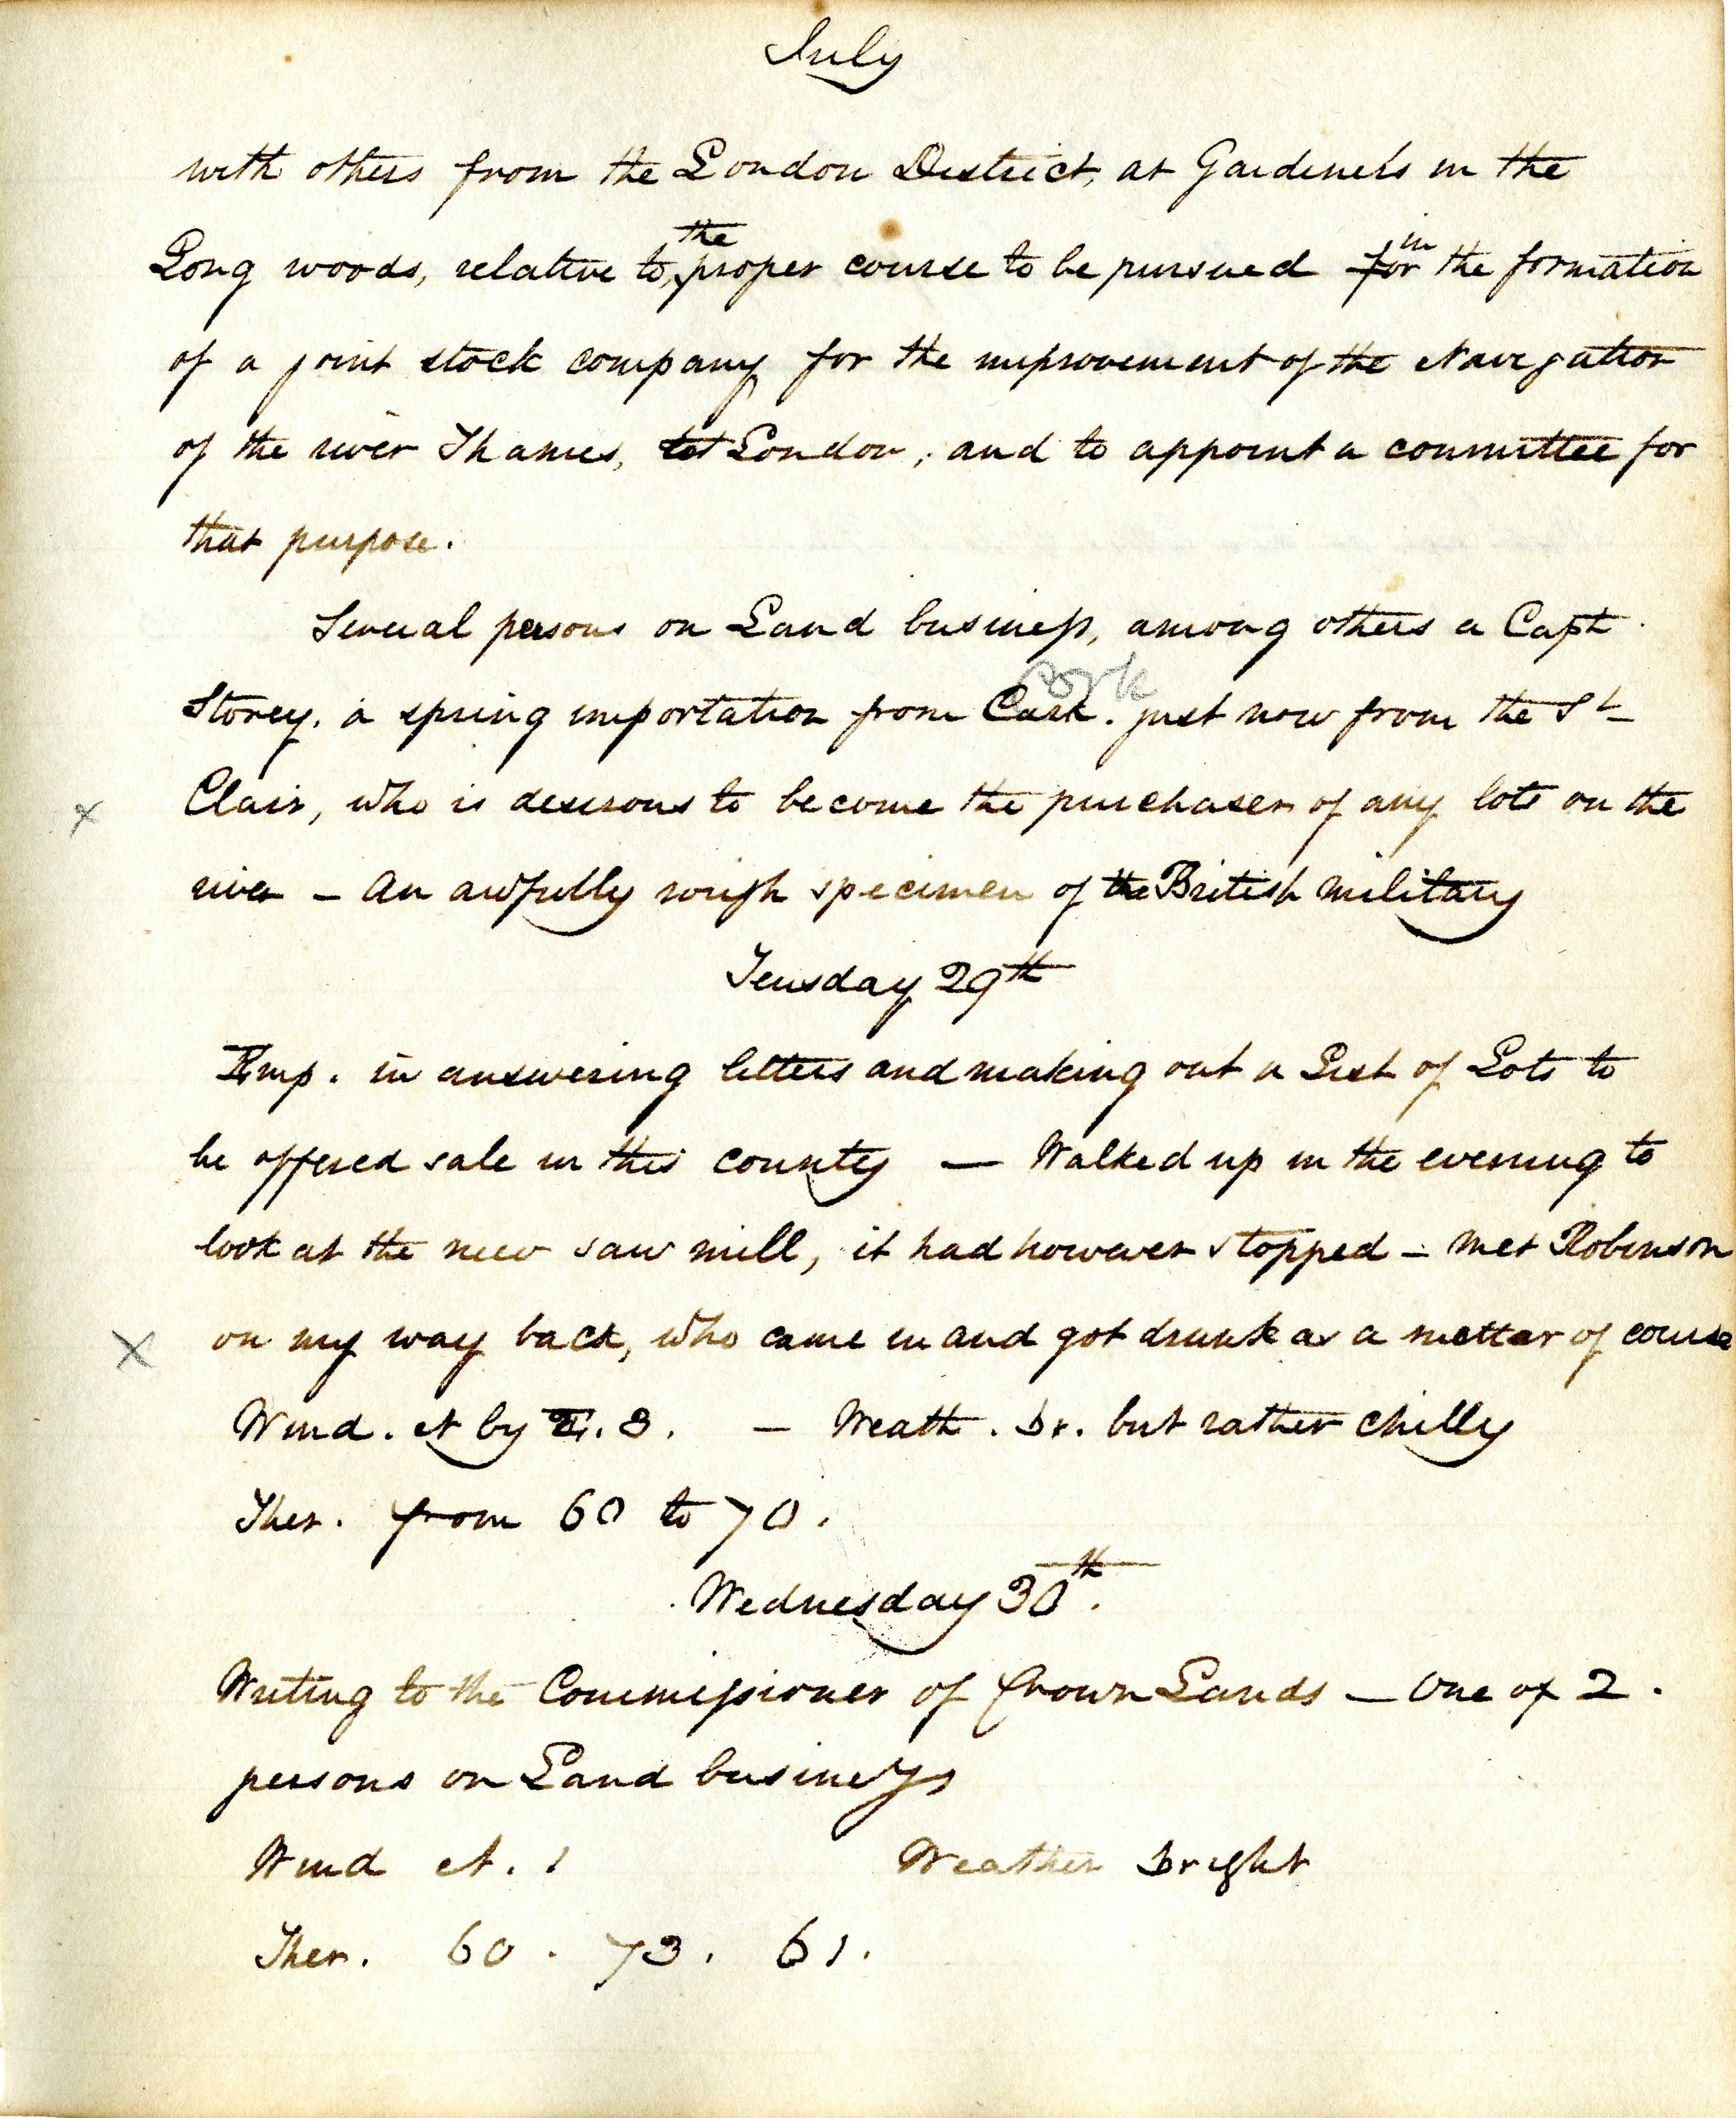 July
with others from the London District, at Gardiner's in the
Long woods, relative to the proper course to be pursued for in the formation
of a joint stock company for the improvement of the Navigation
of the river Thames, to London, and to appoint a committee for
that purpose.
Several persons on Land business, among others a Capt.
Cork
Storey, a spring importation from Cark. just now from the St
Clair, who is desirous to become the purchaser of any lots on the
river – An awfully rough specimen of the British Military
Teusday 29th
Emp. in answering letters and making out a List of Lots to
be offered sale in this county — Walked up in the evening to
look at the new saw mill, it had however stopped – Met Robinson
on my way back, who came in and got drunk as a mettar of course
Wind. N by E. 3. – Weath. br. but rather chilly
Ther. from 60 to 70.
Wednesday 30th.
Writing to the Commissioner of Crown Lands – One or 2.
persons on Land business
Wind N. 1 Weather bright
Ther. 60. 73. 61.